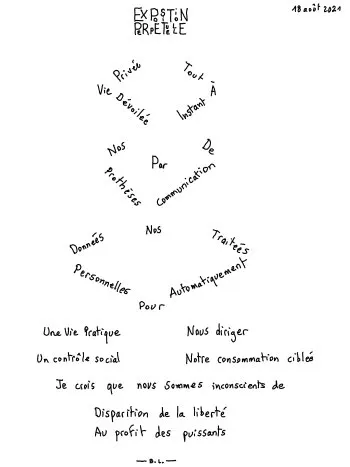 18 août 2021
EXPOSITION
PERPETUELLE
Vie Privée
Dévoilée
À Tout
Instant
Par
Nos
Prothèses
De
Communication
Nos
Données
Personnelles
Traitées
Automatiquement
Pour
Une Vie Pratique
Nous diriger
Un contrôle social
Notre consommation ciblée
Je crois que nous sommes inconscients de
Disparition de la liberté
Au profit des puissants
— B.L. —